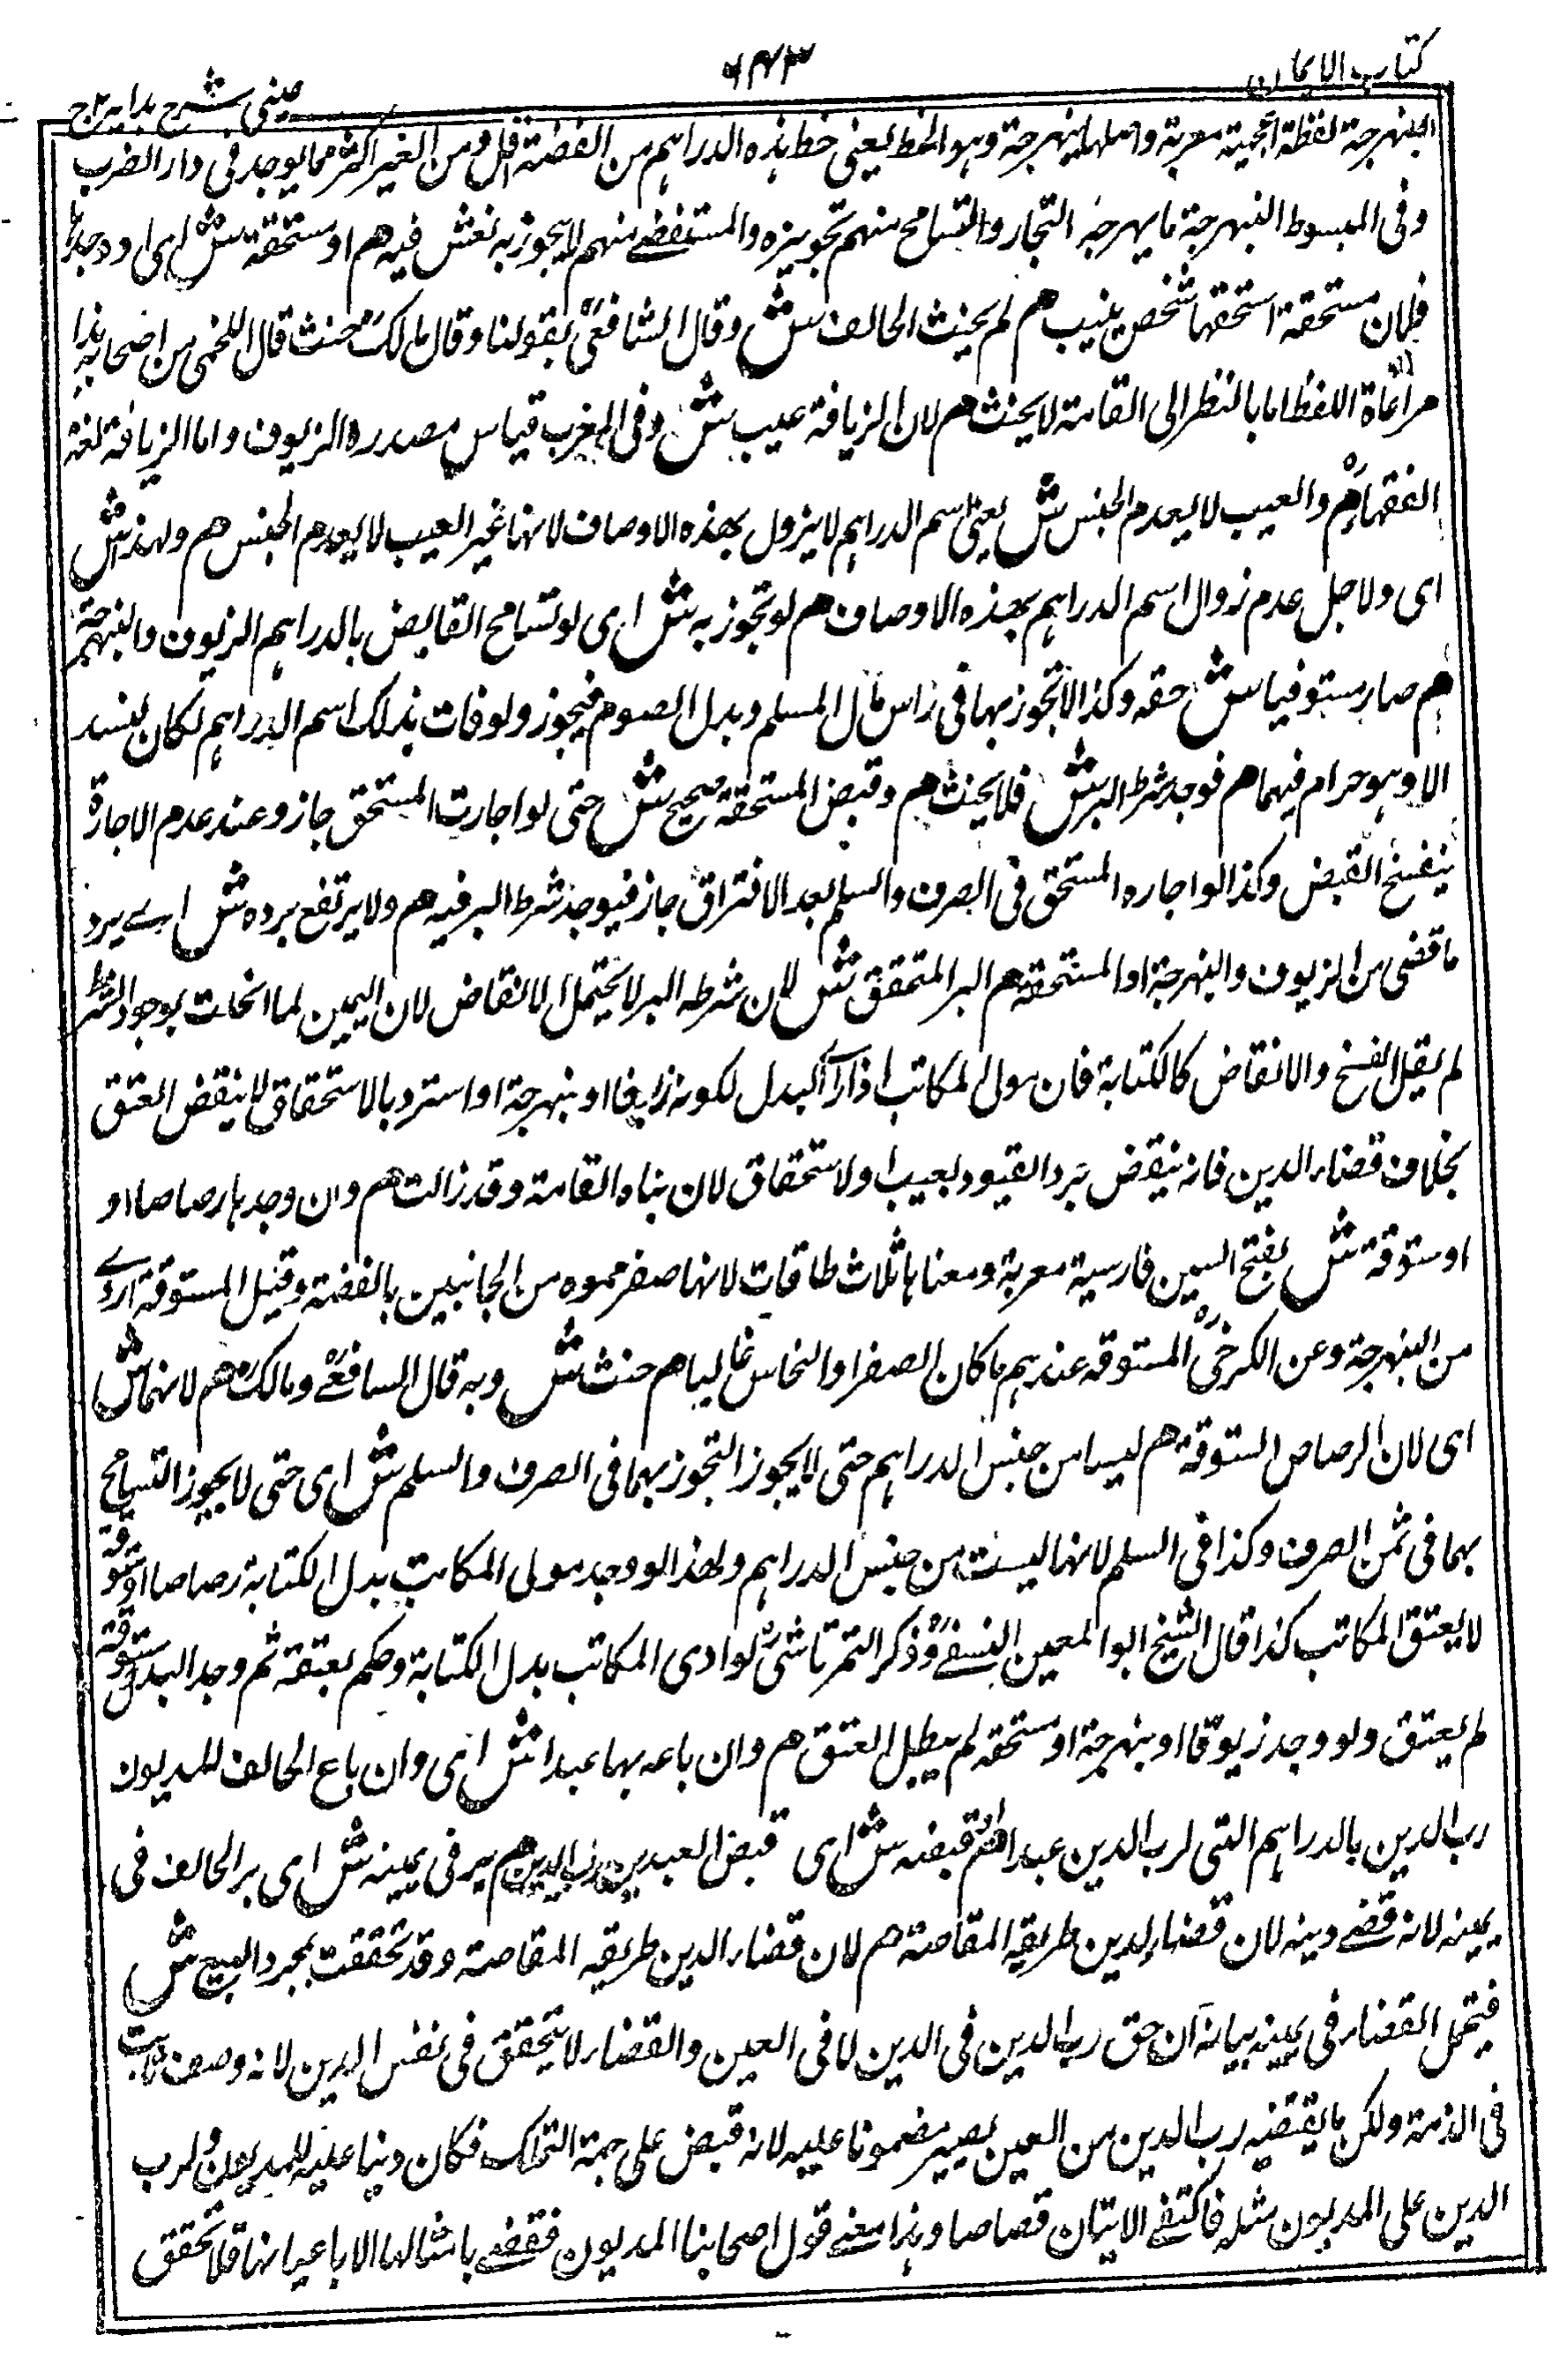 كتاب الايمان
٦٤٣
عينى شرح هدايه ج ٢
البنهرجة لفظة اعجمية معربة واصلها بنهرجة وهو الحظ يعنى حظ هذه الدراهم من الفضة اقل ومن الغير اكثر مما يوجد فى دار الضرب
وفى المبسوط النبهرجة ما يبهرجه التجار والتسامح منهم تجويزه والمستقضے منهم لا يجوز به نغش فيه هم او مستحقة ش اى او وجدها
فلان مستحقة استحقها شخص بنيب هم لم يحنث الحالف ش وقال الشافعىؒ بقولنا وقال مالكؒ يحنث قال اللخمى من اصحابه هذا
مراعاة اللفظ اما بالنظر الى القامة لا يحنث هم لان الزيافة عيب ش وفى المغرب قياس مصدره الزيوف واما الزيافة لغة
الفقهاء هم والعيب لا يعدم الجنس ش يعنى اسم الدراهم لا يزول بهذه الاوصاف لانها غير العيب لا يعدم الجنس هم ولهذا ش
اى ولاجل عدم زوال اسم الدراهم بهذه الاوصاف هم لو تجوز به ش اى لو تسامح القابض بالدراهم الزيوف والنبهرجة
هم صار مستوفيا ش حقه وكذا لا تجوز بها فى راس مال المسلم وبدل الصوم فيجوز ولو فات بذلك اسم الدراهم لكان يستد
الا وهو حرام فيهما هم فوجد شرط البر ش فلا يحنث هم وقبض المستحقة صحيح ش حتى لو اجازت المستحق جاز وعند عدم الاجازة
ينفسخ القبض وكذا لو اجازه المستحق فى الصرف والسلم بعد الافتراق جاز فيوجد شرط البر فيه هم ولا يرتفع برده ش اے يرد
ما قضى من الزيوف والبنهرجة او المستحقة هم البر المتحقق ش لان شرطه البر لا يحتمل الانقاض لان اليمين لما انحلت بوجود الشرط
لم يقبل الفسخ والانقاض كالكتابة فان مولى المكاتب اذا رد البدل لكونه زايفا او بنهرجة او استرد بالاستحقاق لا ينقض العتق
بخلاف قضاء الدين فانه ينقض برد القيود بعيب او لاستحقاق لان بناه القامة وقد زالت هم وان وجدها رصاصا او
او ستوقة ش بفتح السين فارسية معربة ومعناها ثلاث طاقات لانها صفر مموه من الجانبين بالفضة وقيل الستوقة اردے
من البنهرجة وعن الكرخىؒ المستوقه عندهم ما كان الصفر او النحاس غاليا هم حنث ش وبه قال السافعےؒ ومالكؒ هم لانهما ش
اى لان الرصاص الستوقة هم ليسا من جنس الدراهم حتى لا يجوز التجوز بهما فى الصرف والسلم ش اى حتى لا يجوز التسامح
بهما فى ثمن الصرف وكذا فى السلم لانها ليست من جنس الدراهم ولهذا لو وجد مولى المكاتب بدل الكتابة رصاصا او ستوقة
لا يعتق المكاتب كذا قال الشيخ ابو المعين النسفےؒ وذكر التمرتاشىؒ لو ادى المكاتب بدل الكتابة وحكم بعتقه ثم وجد البدل ستوقة
لم يعتق ولو وجد زيوفا او بنهرجة او مستحقه لم يبطل العتق هم وان باعه بها عبدا ش اى وان باع الحالف للمديون
رب الدين بالدراهم التى لرب الدين عبدا هم قبضه ش اى قبض العبد رب الدين هم بر فى يمينه ش اى بر الحالف فى
يمينه لانه قضے دينه لان قضاء الدين طريقه المقاصة هم لان قضاء الدين طريقه المقاصة وقد تحققت بمجرد البيع ش
فيتحمل القضاء فى يمينه بيانه ان حق رب الدين فى الدين لا فى العين والقضاء لا يتحقق فى نفس الدين لانه وصف ثابت
فى الذمة ولكن ما يقتضيه رب الدين من العين يصير مضمونا عليه لانه قبض على جهة التملك فكان دينا عليه للمديون ولرب
الدين على المديون مثله فاكتفے الاتيان قصاصا وهذا معنے قول اصحابنا المديون فقضے بامثالها الا باعيانها قلا تحقق